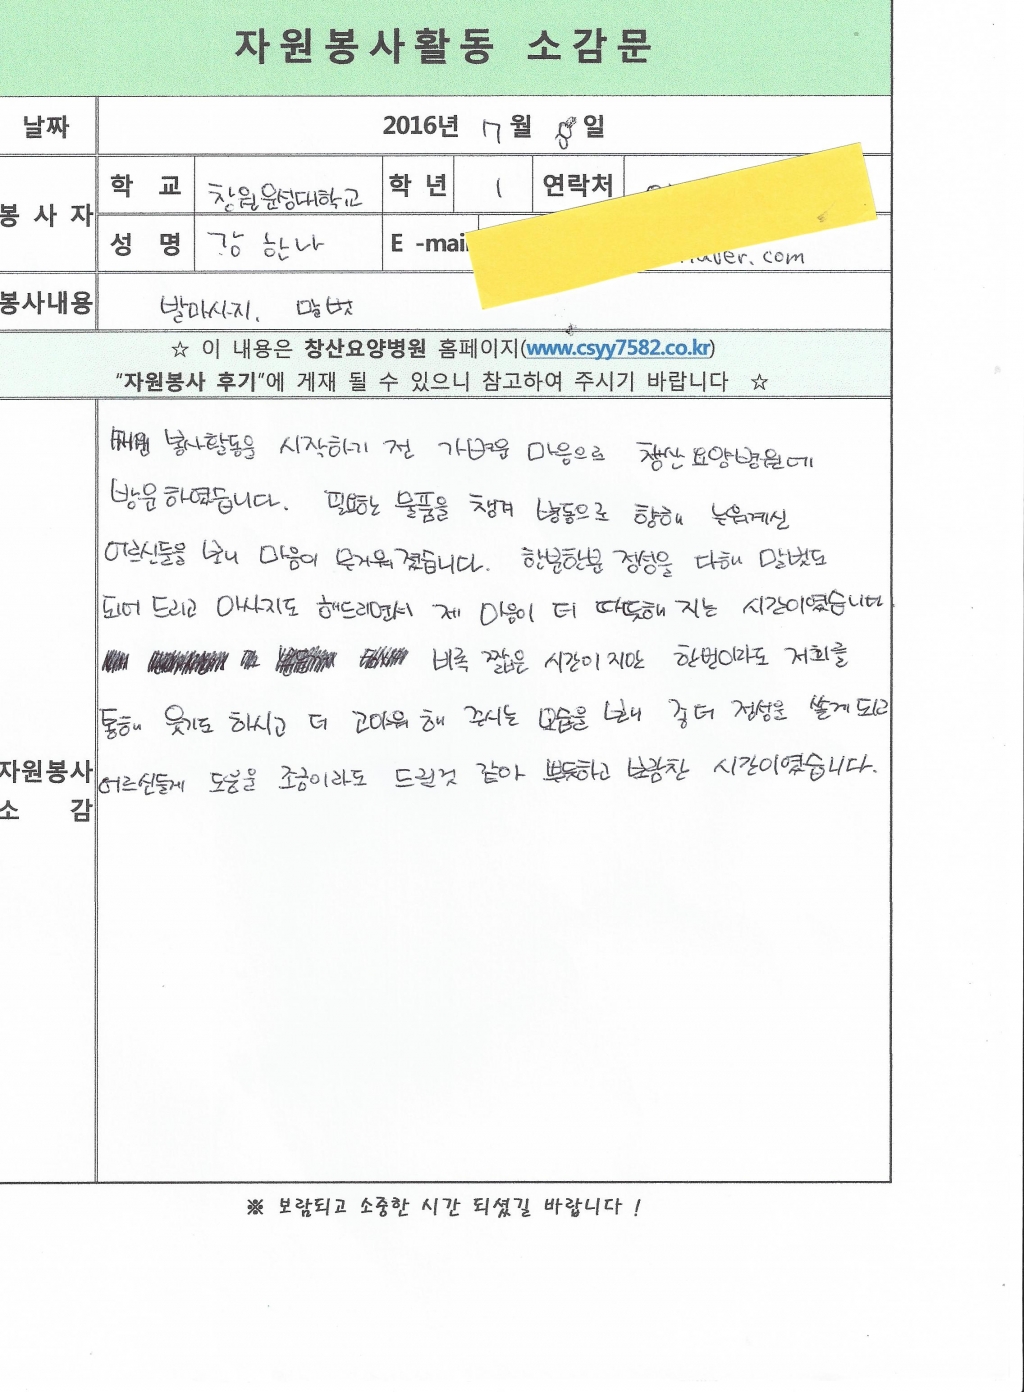 자원봉사활동 소감문
날짜 2016년 7월 8일
봉사자 학 교 창원문성대학교 학 년 1 연락처
성 명 강한나 E -mail naver.com
봉사내용 발마사지, 말벗
☆ 이 내용은 창산요양병원 홈페이지(www.csyy7582.co.kr)
"자원봉사 후기"에 게재 될 수 있으니 참고하여 주시기 바랍니다 ☆
봉사활동을 시작하기 전 가벼운 마음으로 창산요양병원에
방문하였습니다. 필요한 물품을 챙겨 병동으로 향해 누워계신
어르신들을 보니 마음이 무거워졌습니다. 한분한분 정성을 다해 말벗도
되어 드리고 마사지도 해드리면서 제 마음이 더 따뜻해 지는 시간이였습니다
비록 짧은 시간이지만 한번이라도 저희를
통해 웃기도 하시고 더 고마워 해 주시는 모습을 보니 좀 더 정성을 쏟게 되고
자원봉사 소 감 어르신들께 도움을 조금이라도 드릴것 같아 뿌듯하고 보람찬 시간이였습니다.
※ 보람되고 소중한 시간 되셨길 바랍니다 !